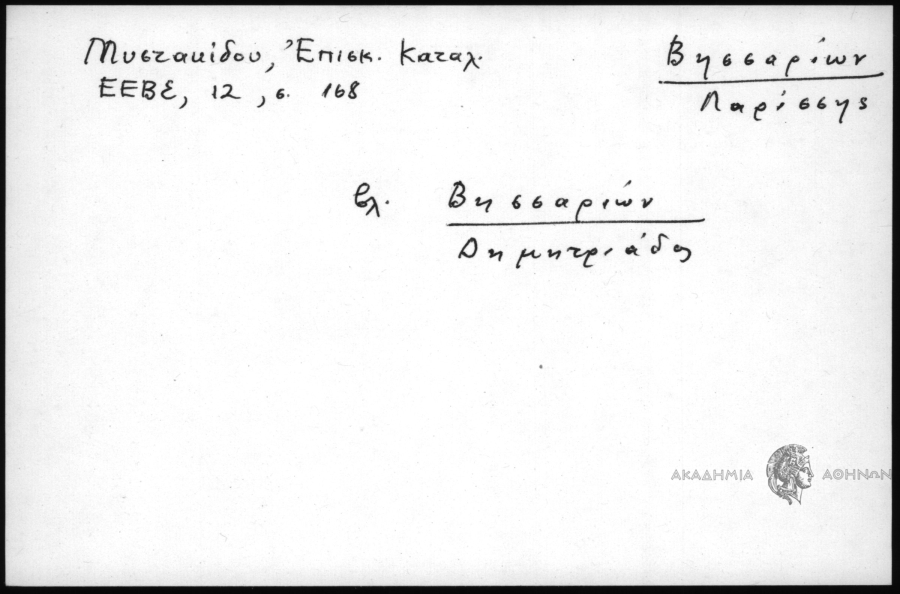 Μυστακίδου, Ἐπισκ. Καταλ.
ΕΕΒΣ, 12, σ. 168
Βησσαρίων
Λαρίσσης
βλ. Βησσαριών
Δημητριάδος
ΑΚΑΔΗΜΙΑ ΑΘΗΝΩΝ